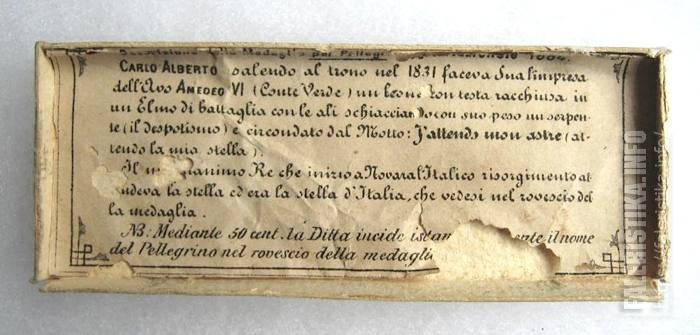 Descrizione della Medaglia pei Pellegri 1884.
CARLO ALBERTO salendo al trono nel 1831 faceva Sua l'impresa
dell'Avo AMEDEO VI (Conte Verde) un leone con testa racchiusa in
un Elmo di battaglia con le ali schiaccia do con suo peso un serpen-
te (il despotismo) e circondato dal Motto: J'attends mon astre (at-
tendo la mia stella).
Il m nanimo Re che iniziò a Novara l'Italico risorgimento at
ndeva la stella ed era la stella d'Italia, che vedesi nel rovescio del
la medaglia.
NB: Mediante 50 cent. la Ditta incide istan nte il nome
del Pellegrino nel rovescio della medagli
FALERISTIKA.INFO